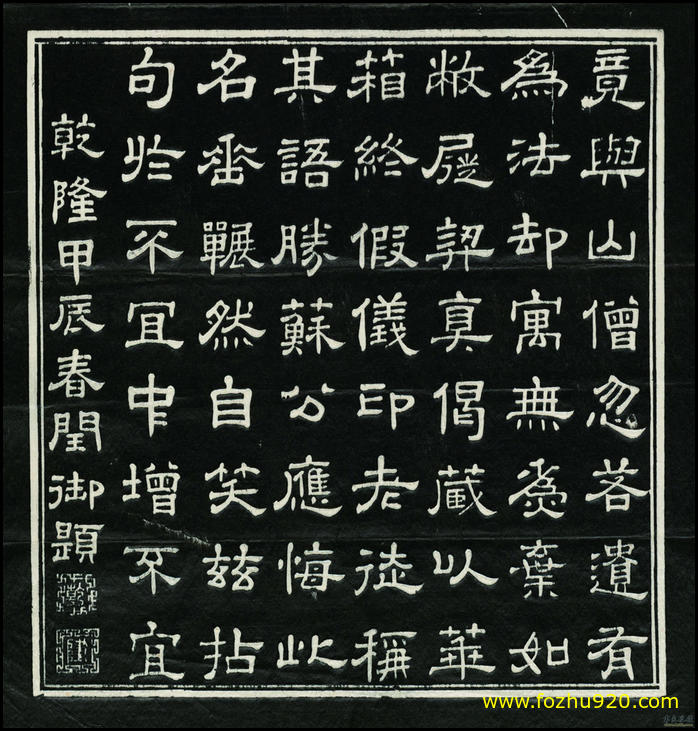 竟與山僧忽若遺有
為法却寓無為棄如
敝屣契真偈藏以華
箱終假儀印老徒稱
其語勝蘇公應悔此
名垂囅然自笑茲拈
句於不宜中增不宜
乾隆甲辰春閏御題
www.fozhu920.com